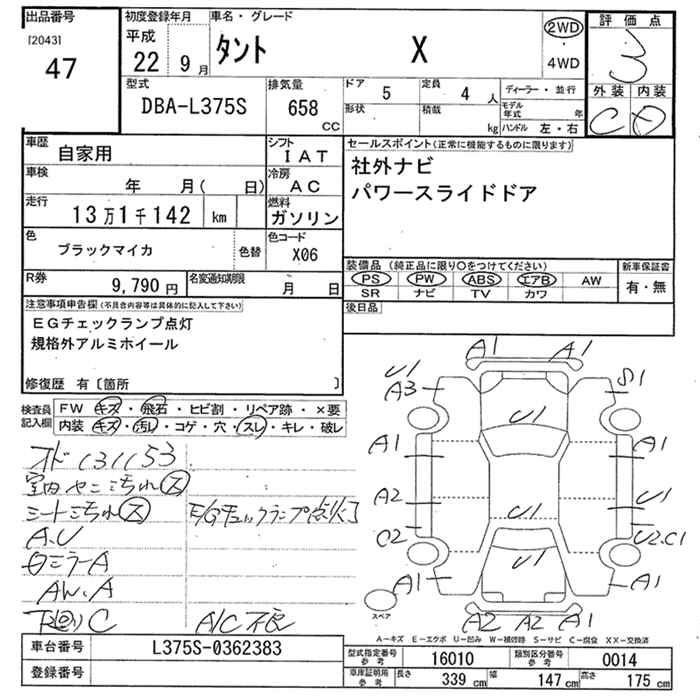 出品番号
[2043]
47
初度登録年月
平成
22 9 月
車名・グレード
タント X
2WD
・
4WD
評価点
3
外装 内装
C D
型式
DBA-L375S
排気量
658
CC
ドア 5
定員 4 人
形状
積載 kg
ディーラー・並行
モデル年式 年
ハンドル 左・右
車歴
自家用
シフト
IAT
車検
年 月( 日)
冷房
AC
走行
13万1千142 km
燃料
ガソリン
色
ブラックマイカ
色替
色コード
X06
R券
9,790 円
名変通知期限
月 日
セールスポイント(正常に機能するものに限ります)
社外ナビ
パワースライドドア
装備品(純正品に限り○をつけてください)
PS PW ABS エアB AW
SR ナビ TV カワ
新車保証書
有・無
後日品
注意事項申告欄(不具合内容等は具体的に記入して下さい)
EGチェックランプ点灯
規格外アルミホイール
修復歴 有〔箇所 〕
検査員
記入欄
FW キズ・飛石・ヒビ割・リペア跡・×要
内装 キズ・汚レ・コゲ・穴・スレ・キレ・破レ
オド131153
室内ヤニ汚れ(大)
シート汚れ(大)
E/Gチェックランプ点灯
A.U
ミラーA
AW.A
下廻りC
A/C不良
A1 A1
U1
A3
S1
U1
A1
A1
A2
U1
U1
C2
U2.C1
U1
A1
A1
スペア
A2 A2 A1
A-キズ E-エクボ U-凹み W-補修跡 S-サビ C-腐食 XX-交換済
車台番号
L375S-0362383
登録番号
型式指定番号
参考
16010
類別区分番号
参考
0014
車庫証明用
参考
長さ 339 cm
幅 147 cm
高さ 175 cm